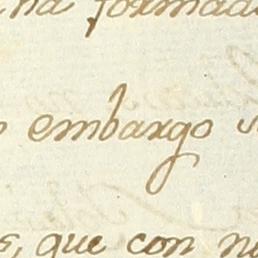 na formada
o embargo s
s, que con n